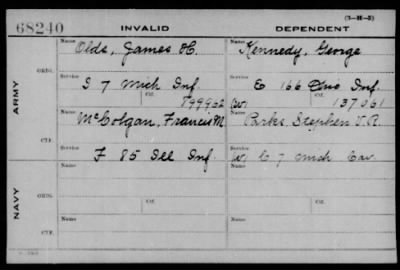 (3-H-3)
68240 INVALID DEPENDENT
Name Olds, James H. Name Kennedy, George
ORIG.
Service Service
I 7 Mich Inf. E 166 Ohio Inf.
Ctf. 899962 (W) Ctf. 137061
ARMY
Name McColgan, Francis M. Name Parks Stephen V. R.
CTF.
Service Service
F 85 Ill Inf (W) C 7 Mich Cav.
Name Ctf. Name Ctf.
ORIG.
NAVY
Name Name
CTF.